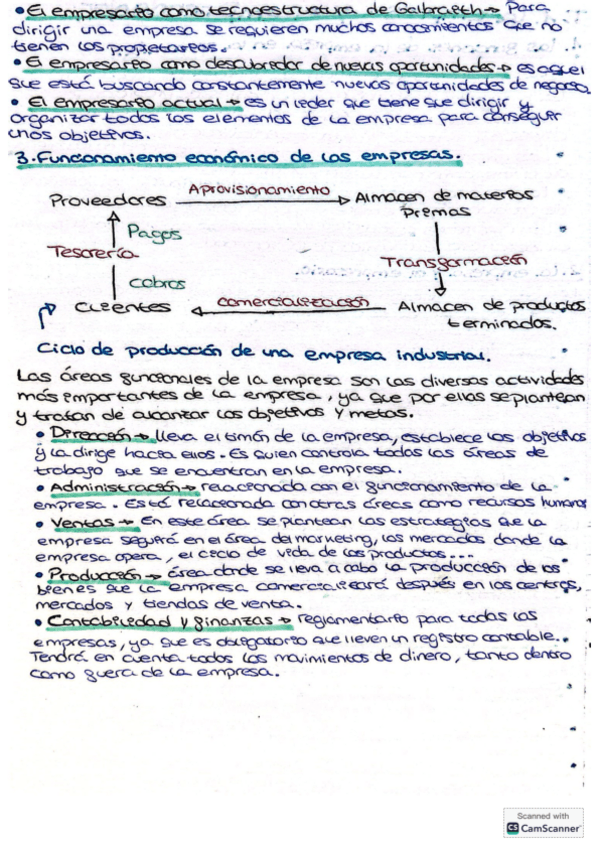 • El empresario como tecnoestructura de Galbraith → Para
dirigir una empresa se requieren muchos conocimientos que no
tienen los propietarios.
• El empresario como descubridor de nuevas oportunidades → es aquel
que está buscando constantemente nuevas oportunidades de negocio
• El empresario actual → es un líder que tiene que dirigir y
organizar todos los elementos de la empresa para conseguir
unos objetivos.
3. Funcionamiento económico de las empresas.
Proveedores Aprovisionamiento Almacen de materias
Primas
Pagos
Tesorería Transformación
cobros
Clientes comercialización Almacen de productos
terminados.
Ciclo de producción de una empresa industrial.
Las áreas funcionales de la empresa son las diversas actividades
más importantes de la empresa, ya que por ellas se plantean
y tratan de alcanzar los objetivos y metas.
• Dirección → lleva el timón de la empresa, establece los objetivos
y la dirige hacia ellos. Es quien controla todas las áreas de
trabajo que se encuentran en la empresa.
• Administración → relacionada con el funcionamiento de la
empresa. Está relacionada con otras áreas como recursos humanos
• Ventas → En este área se plantean las estrategias que la
empresa seguirá en el área del marketing, los mercados donde la
empresa opera, el ciclo de vida de los productos...
• Producción → área donde se lleva a cabo la producción de los
bienes que la empresa comercializará después en los centros,
mercados y tiendas de venta.
• Contabilidad y finanzas → reglamentario para todas las
empresas, ya que es obligatorio que lleven un registro contable..
Tendrá en cuenta todos los movimientos de dinero, tanto dentro
como fuera de la empresa.
Scanned with
CS CamScanner